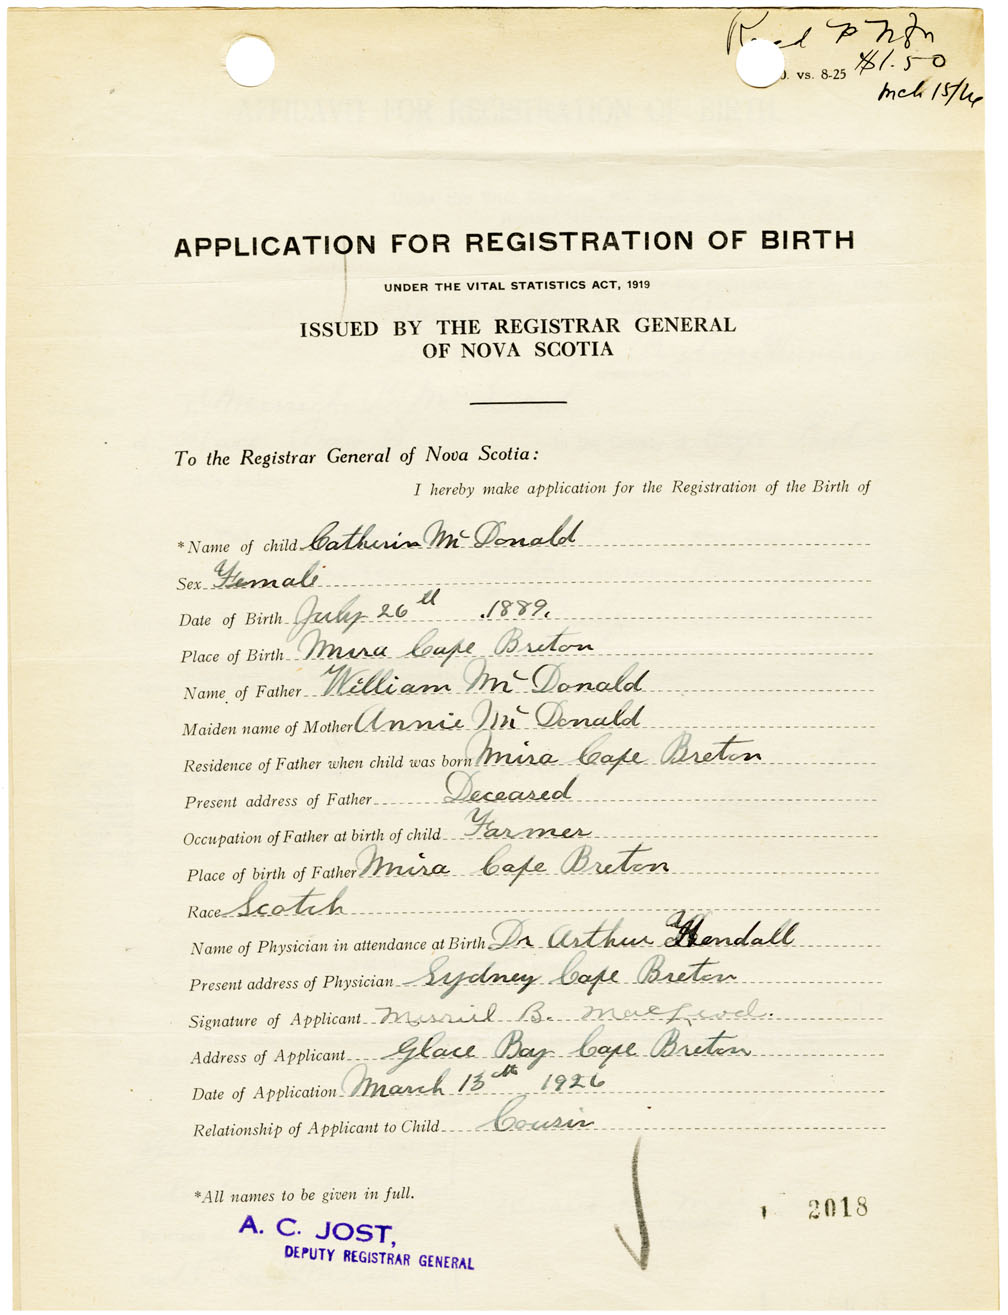 P N Gn
$1.50
. vs. 8-25
Mch 15/26
APPLICATION FOR REGISTRATION OF BIRTH
UNDER THE VITAL STATISTICS ACT, 1919
ISSUED BY THE REGISTRAR GENERAL
OF NOVA SCOTIA
To the Registrar General of Nova Scotia:
I hereby make application for the Registration of the Birth of
*Name of child Catherin Mc Donald
Sex Female
Date of Birth July 26th 1889.
Place of Birth Mira Cape Breton
Name of Father William Mc Donald
Maiden name of Mother Annie Mc Donald
Residence of Father when child was born Mira Cape Breton
Present address of Father Deceased
Occupation of Father at birth of child Farmer
Place of birth of Father Mira Cape Breton
Race Scotch
Name of Physician in attendance at Birth Dr Arthur Kendall
Present address of Physician Sydney Cape Breton
Signature of Applicant Merril B. MacLeod.
Address of Applicant Glace Bay Cape Breton
Date of Application March 13th 1926
Relationship of Applicant to Child Cousin
*All names to be given in full.
2018
A. C. JOST,
DEPUTY REGISTRAR GENERAL